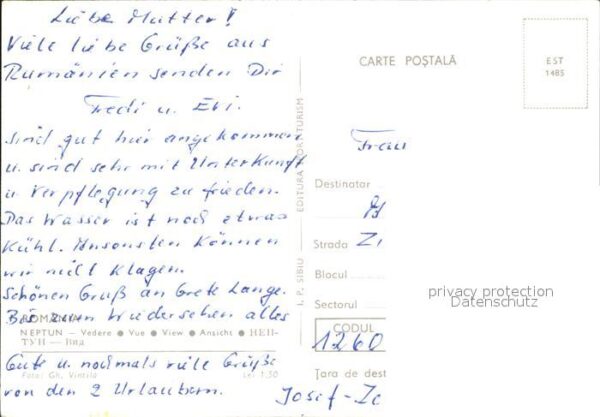 Liebe Mutter!
Viele liebe Grüße aus
Rumänien senden Dir
Fredi u. Evi.
sind gut hier angekommen
u. sind sehr mit Unterkunft
u. Verpflegung zufrieden.
Das Wasser ist noch etwas
kühl. Ansonsten können
wir nicht klagen.
Schönen Gruß an Grete Lange.
Bis zum Wiedersehen alles
ROMANIA
NEPTUN — Vedere ● Vue ● View ● Ansicht ● НЕП-
ТУН — Вид
Gute u. nochmals viele Grüße
Foto: Gh. Vintilă Lei 1,50
von den 2 Urlaubern.
I. P. SIBIU EDITURA
CARTE POȘTALĂ
EST
1485
Frau
Destinatar
Strada
Blocul
Sectorul
privacy protection
Datenschutz
CODUL
1260
Țara de dest
Josef-